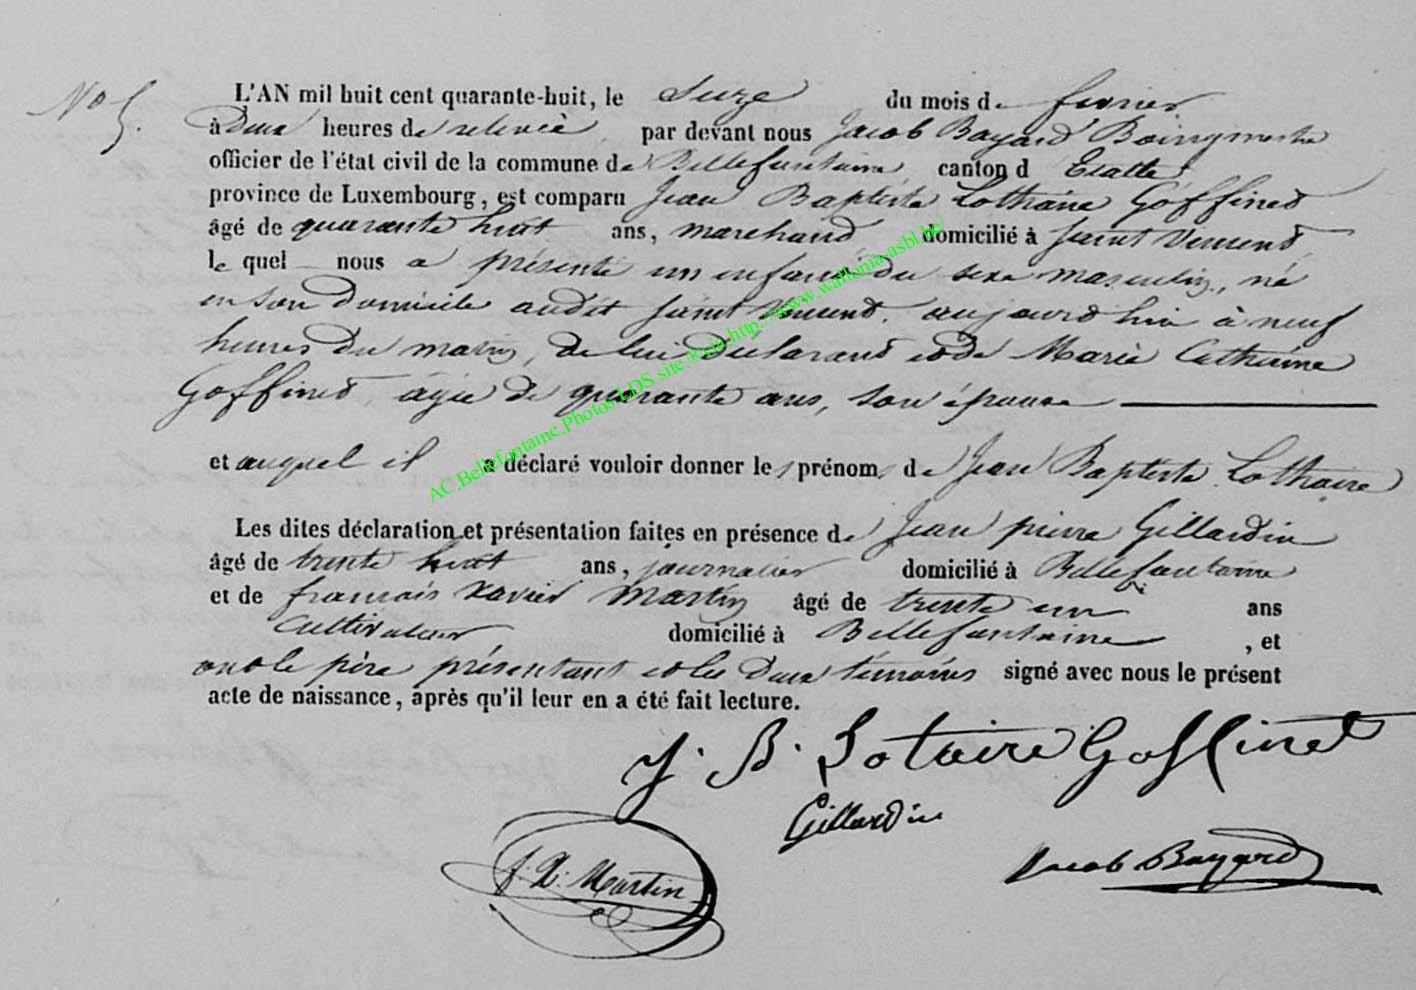 N° 5.
L'AN mil huit cent quarante-huit, le Seize du mois de février
à Deux heures de relevée par devant nous Jacob Bayard Bourgmestre
officier de l'état civil de la commune de Bellefontaine canton d' Etalle
province de Luxembourg, est comparu Jean Baptiste Lothaire Goffinet
âgé de quarante huit ans, marchand domicilié à Saint Vincent,
le quel nous a présenté un enfant du sexe masculin, né
en son domicile audit Saint Vincent, aujourd'hui à neuf
heures du matin, de lui déclarant et de Marie Catherine
Goffinet, âgée de quarante ans, son épouse
et auquel il a déclaré vouloir donner les prénoms de Jean Baptiste Lothaire
Les dites déclaration et présentation faites en présence de Jean pierre Gillardin
âgé de trente huit ans, journalier domicilié à Bellefontaine
et de françois Xavier Martin âgé de trente un ans
Cultivateur domicilié à Bellefontaine, et
ont le père présentant et les deux témoins signé avec nous le présent
acte de naissance, après qu'il leur en a été fait lecture.
J. B. Lotaire Goffinet
Gillardin
f. X. Martin
Jacob Bayard
AC.Bellefontaine.Photos.LDS site.&via.http://www.wallonia-asbl.be/